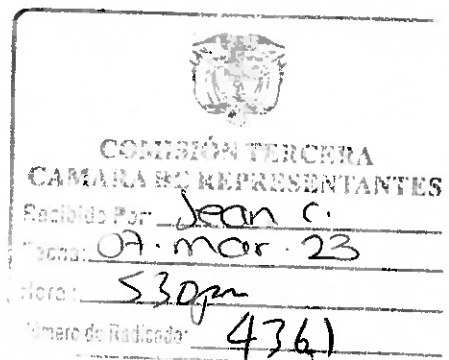 COMISIÓN TERCERA
CAMARA DE REPRESENTANTES
Recibido Por: Jean C.
Fecha: 07. mar. 23
Hora: 530pm
Número de Radicado: 4361